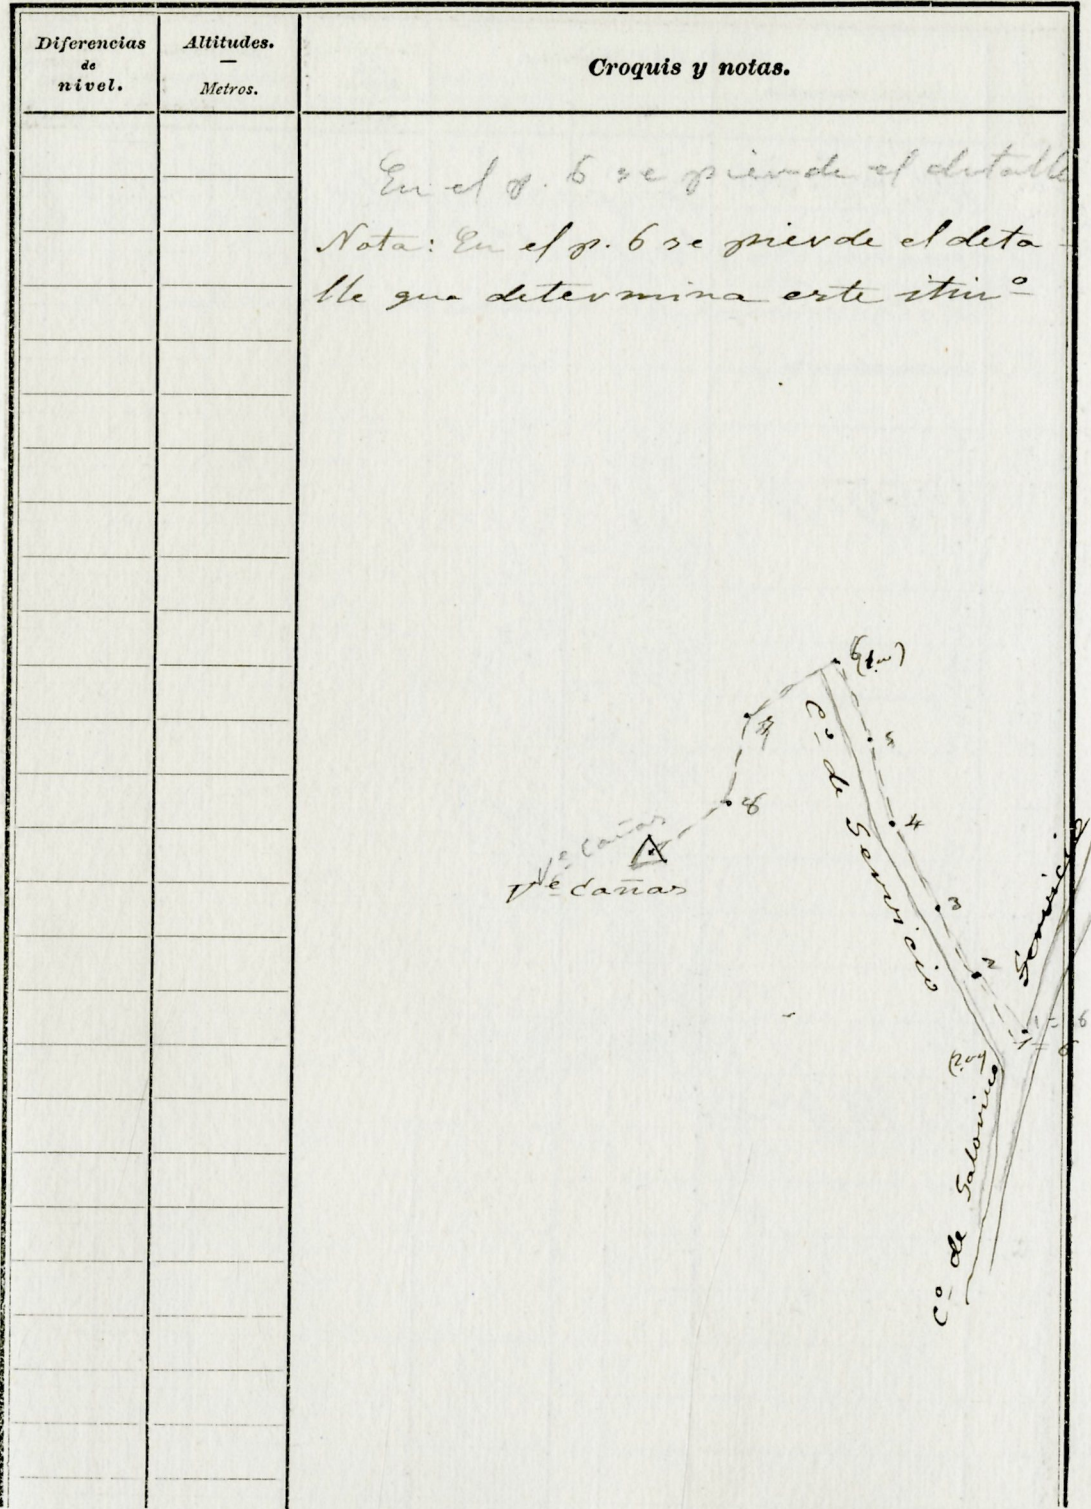 Diferencias
de
nivel.
Altitudes.
—
Metros.
Croquis y notas.
En el p. 6 se pierde el detalle
Nota: En el p. 6 se pierde el deta-
lle que determina este itinº
6
7
5
8
4
Vº Cañas
Vº Cañas
Cº de Servicio
3
2
Servicio
1
6
Cº de